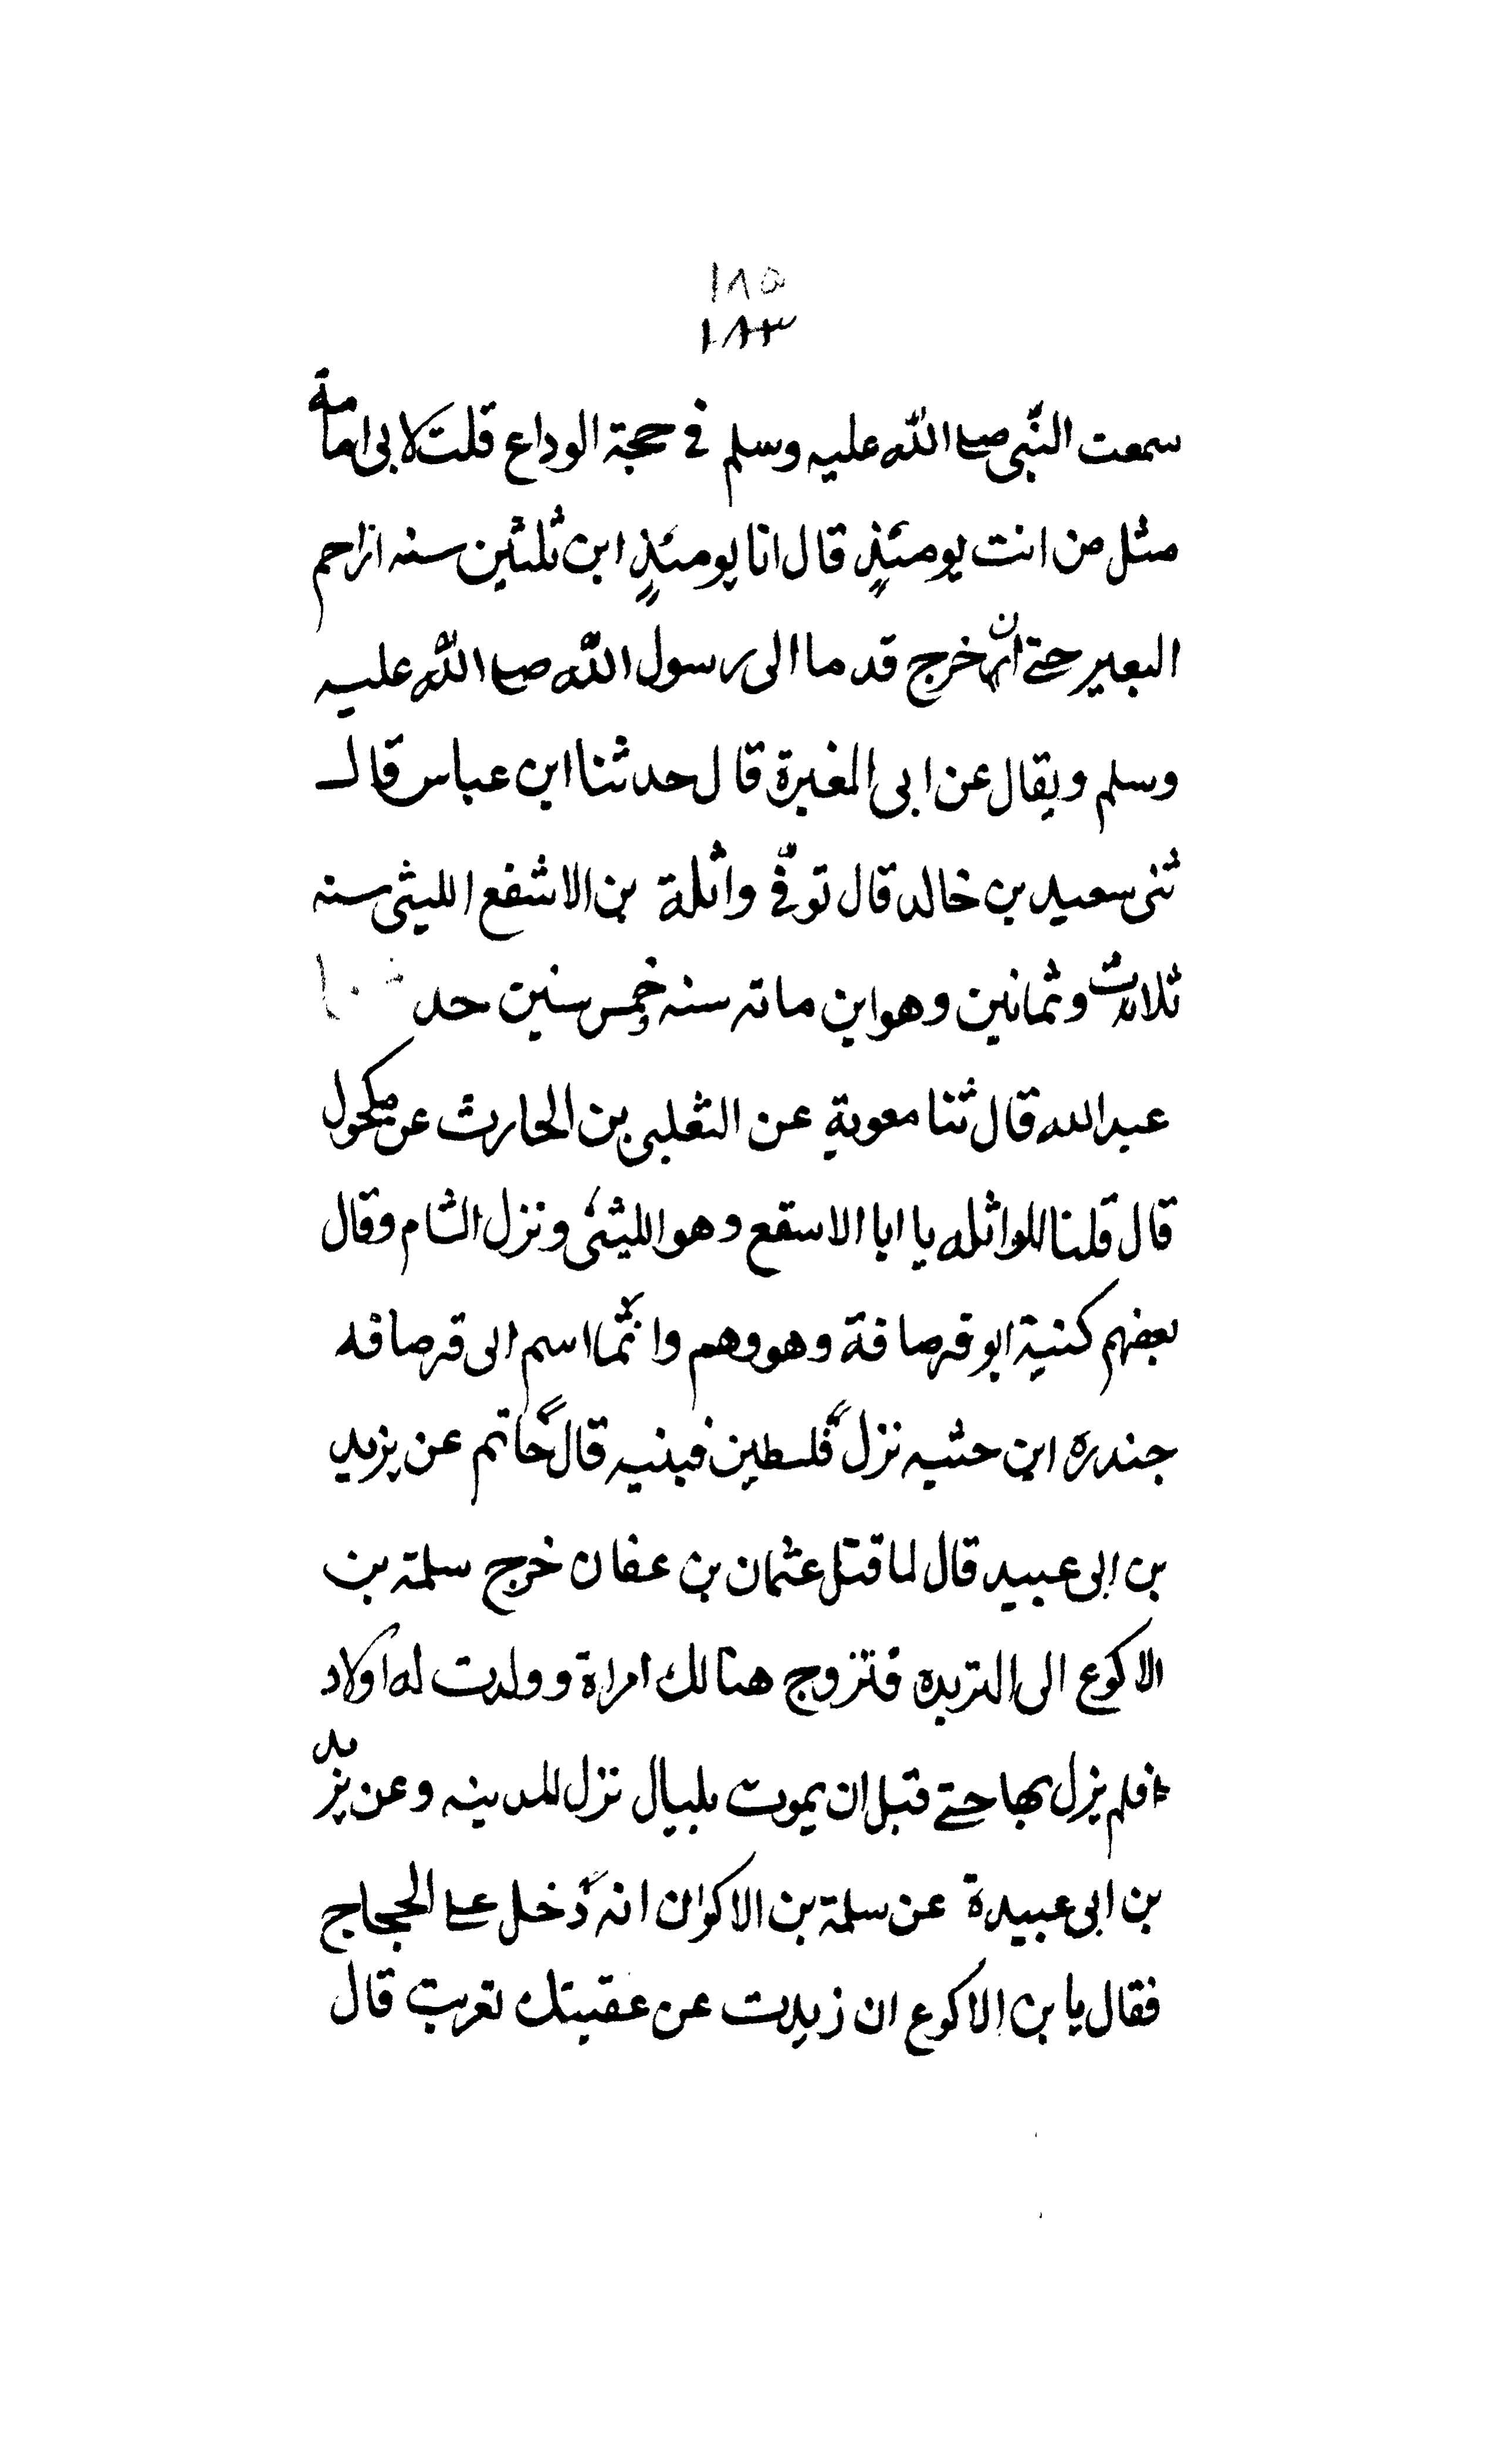 ١٨٥
١٨٣
سمعت النبّى صلے اللّٰه عليه وسلم فى حجة الوداع قلت لابى امامة
مثل من انت يومئذٍ قال انا يومئذٍ ابن ثلثين سنه ازاحم
البعير حتے ان خرج قدما الى رسول اللّٰه صلے اللّٰه عليه
وسلم ويقال عن ابى المغيرة قال حدثنا ابن عباس قال
ثنى سعيد بن خالد قال توفّى واثلة بن الاشفع الليثى سنه
ثلاث وثمانين وهو ابن مائه سنه خمس سنين حد
عبد الله قال ثنا معوية عن الثعلبى بن الحارث عن مكحول
قال قلنا للواثله يا ابا الاسقع وهو الليثى ونزل الشام وقال
بعضهم كنية ابو قرصافة وهو وهم وانّما اسم ابى قرصافه
جندره ابن حثيه نزل فلسطين فبنيه قال حاتم عن يزيد
بن ابى عبيد قال لما قتل عثمان بن عفان خرج سلمة بن
الاكوع الى التربده فتزوج هنالك امراة وولدت له اولاد
فلم يزل بها حتے قبل ان يموت بليال نزل للمدينه وعن يزيد
بن ابى عبيدة عن سلمة بن الاكوان انه دخل علے الحجاج
فقال يا بن الاكوع ان زيدت عن عقبيتك تعربت قال